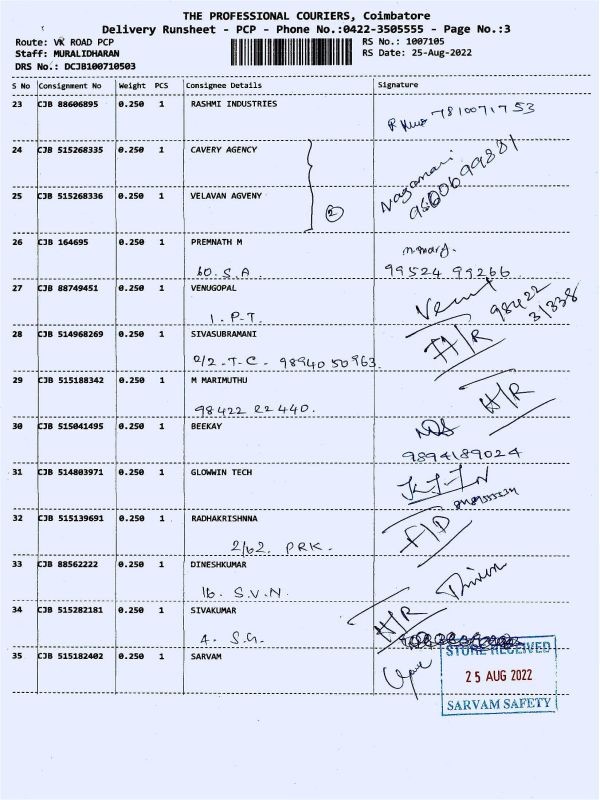 THE PROFESSIONAL COURIERS, Coimbatore
Delivery Runsheet - PCP - Phone No.:0422-3505555 - Page No.:3
Route: VK ROAD PCP
RS No.: 1007105
Staff: MURALIDHARAN
RS Date: 25-Aug-2022
DRS No.: DCJB100710503
S No Consignment No Weight PCS Consignee Details Signature
23 CJB 88606895 0.250 1 RASHMI INDUSTRIES
7810071753
24 CJB 515268335 0.250 1 CAVERY AGENCY
Nagamani
25 CJB 515268336 0.250 1 VELAVAN AGVENY
2
26 CJB 164695 0.250 1 PREMNATH M
60. S.A. 99524 99266
27 CJB 88749451 0.250 1 VENUGOPAL
98422 31338
1. P.T.
28 CJB 514968269 0.250 1 SIVASUBRAMANI
H/R
2/2 - T.C - 98940 50963
29 CJB 515188342 0.250 1 M MARIMUTHU
H/R
98422 22440.
30 CJB 515041495 0.250 1 BEEKAY
9894189024
31 CJB 514803971 0.250 1 GLOWWIN TECH
32 CJB 515139691 0.250 1 RADHAKRISHNNA
F/D
2/62. PRK.
33 CJB 88562222 0.250 1 DINESHKUMAR
16. S.V.N.
34 CJB 515282181 0.250 1 SIVAKUMAR
H/R
4. S.G.
35 CJB 515182402 0.250 1 SARVAM
STORE RECEIVED
25 AUG 2022
SARVAM SAFETY